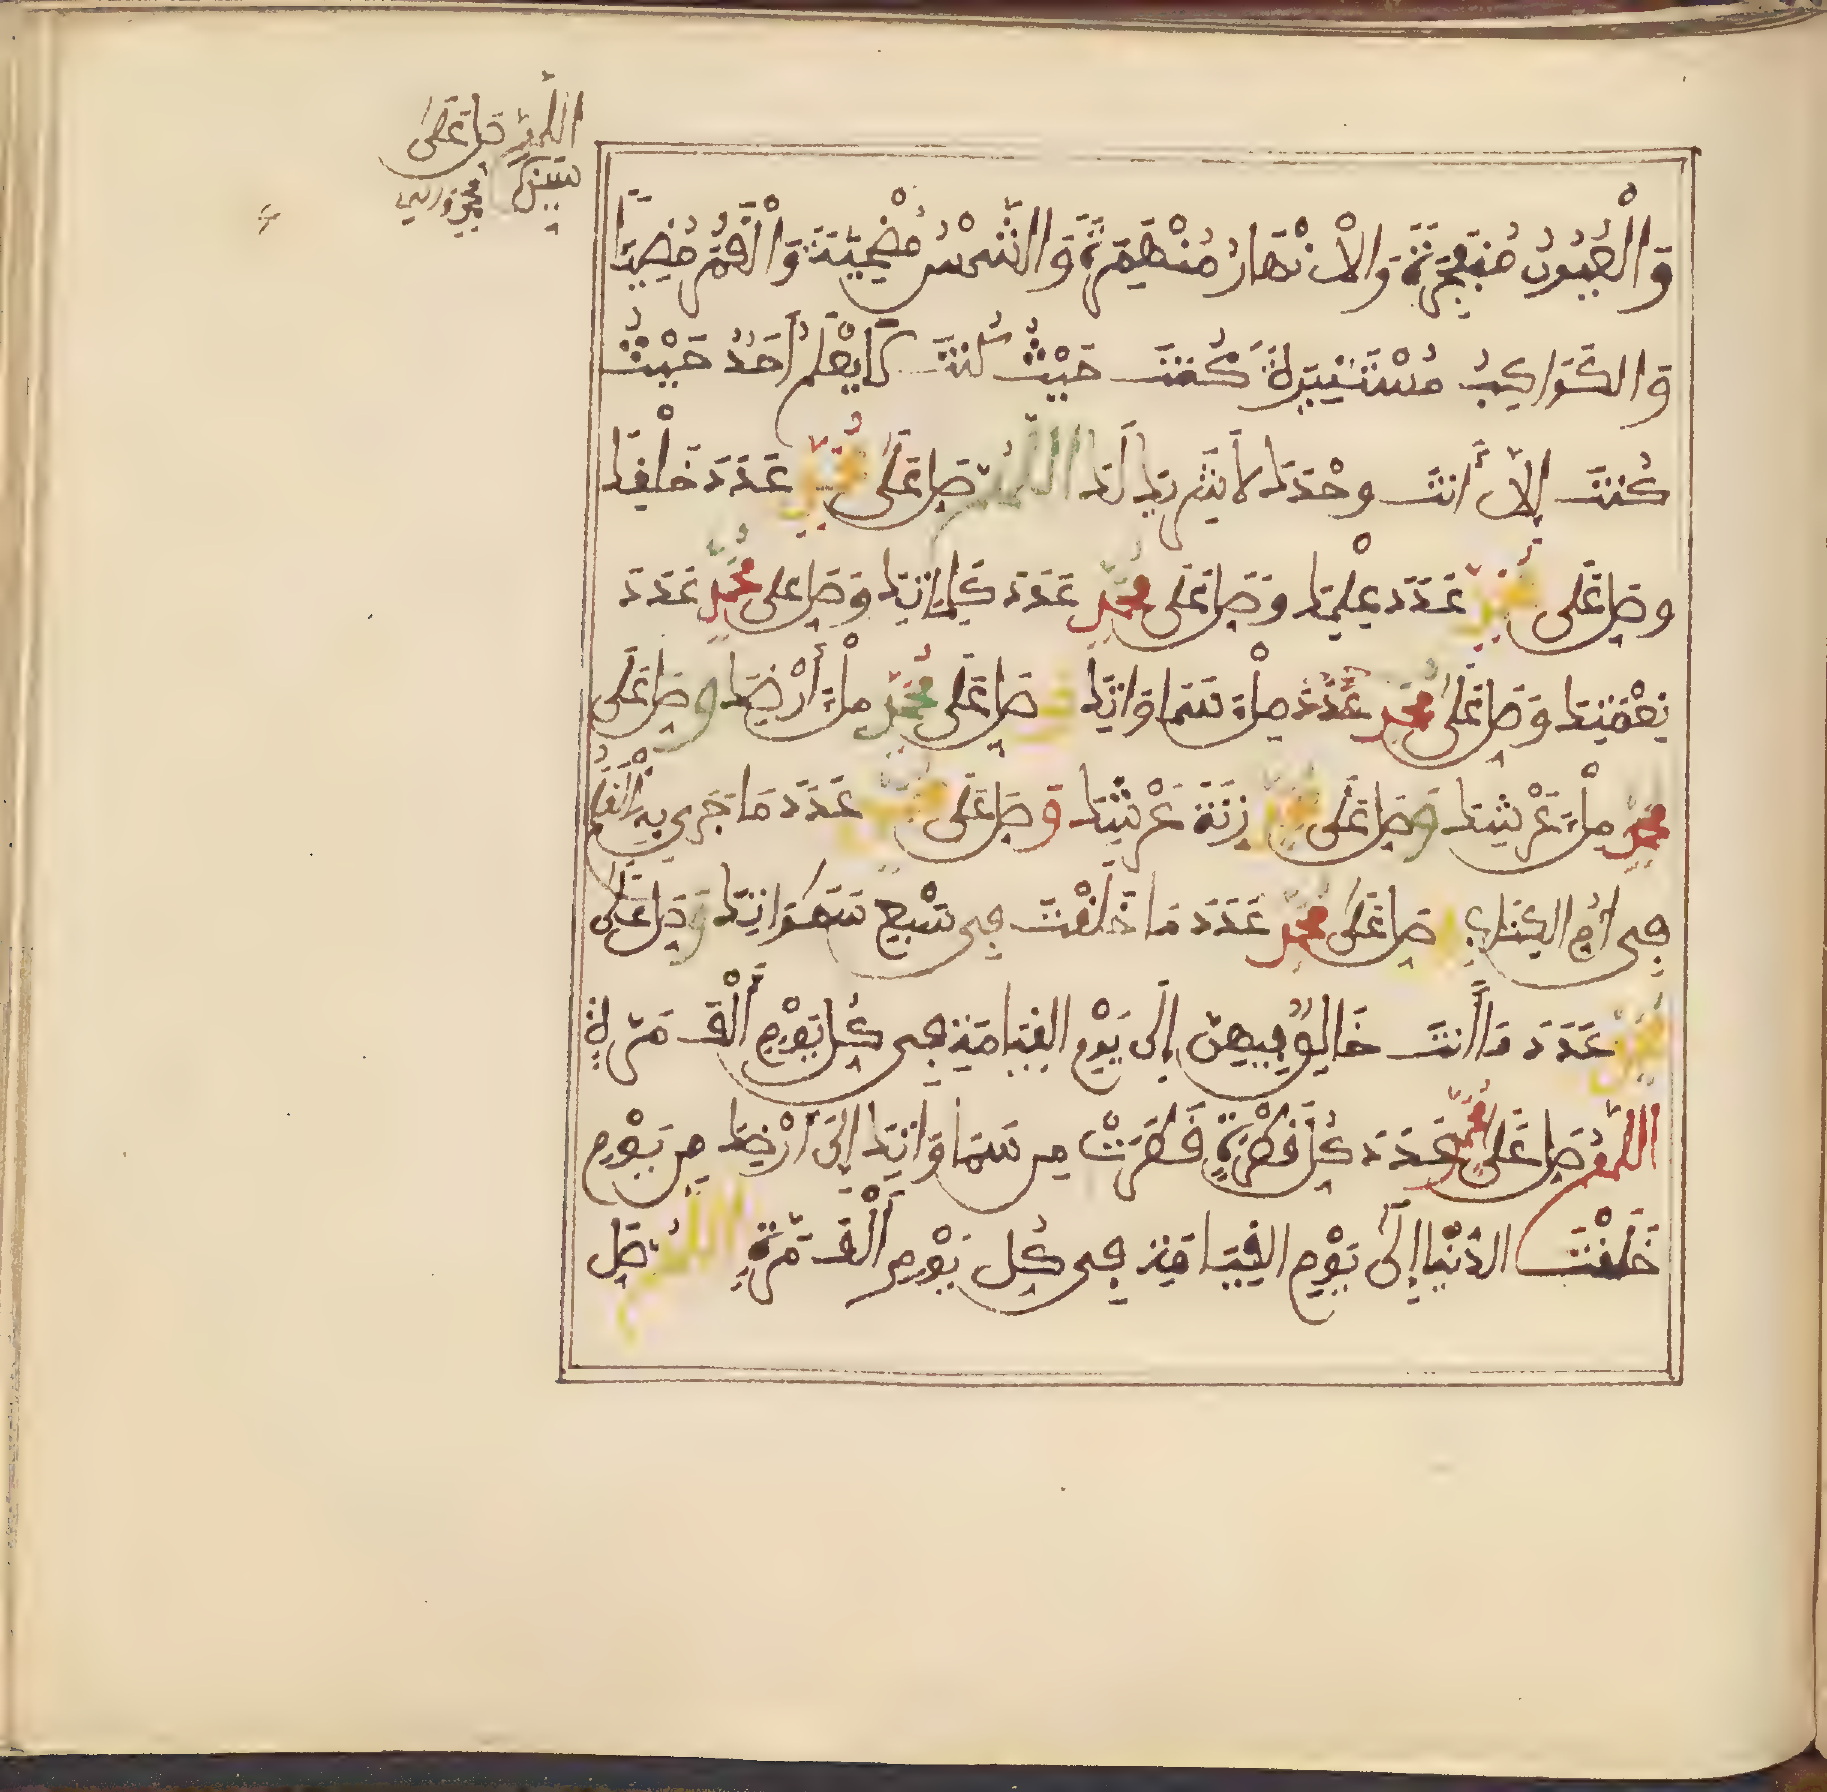 اللهم صل على
سيدنا محمد وسلم
وَالْعُيُونُ مُنْفَجِرَةً وَالْأَنْهَارُ مُنْهَمِرَةً وَالشَّمْسُ مُضْحِيَةً وَالْقَمَرُ مُضِيئًا
وَالْكَوَاكِبُ مُسْتَنِيرَةً كُنْتَ حَيْثُ كُنْتَ لَا يَعْلَمُ أَحَدٌ حَيْثُ
كُنْتَ إِلَّا أَنْتَ وَحْدَكَ لَا شَرِيكَ لَكَ اللَّهُمَّ صَلِّ عَلَى مُحَمَّدٍ عَدَدَ خَلْقِكَ
وَصَلِّ عَلَى مُحَمَّدٍ عَدَدَ عِلْمِكَ وَصَلِّ عَلَى مُحَمَّدٍ عَدَدَ كَلِمَاتِكَ وَصَلِّ عَلَى مُحَمَّدٍ عَدَدَ
نِعْمَتِكَ وَصَلِّ عَلَى مُحَمَّدٍ عَدَدَ مِلْءَ سَمَاوَاتِكَ وَصَلِّ عَلَى مُحَمَّدٍ مِلْءَ أَرْضِكَ وَصَلِّ عَلَى
مُحَمَّدٍ مِلْءَ عَرْشِكَ وَصَلِّ عَلَى مُحَمَّدٍ زِنَةَ عَرْشِكَ وَصَلِّ عَلَى مُحَمَّدٍ عَدَدَ مَا جَرَى بِهِ الْقَلَمُ
فِي أُمِّ الْكِتَابِ وَصَلِّ عَلَى مُحَمَّدٍ عَدَدَ مَا خَلَقْتَ فِي سَبْعِ سَمَوَاتِكَ وَصَلِّ عَلَى
مُحَمَّدٍ عَدَدَ مَا أَنْتَ خَالِقٌ فِيهِنَّ إِلَى يَوْمِ الْقِيَامَةِ فِي كُلِّ يَوْمٍ أَلْفَ مَرَّةٍ
اللَّهُمَّ صَلِّ عَلَى مُحَمَّدٍ عَدَدَ كُلِّ قَطْرَةٍ قَطَرَتْ مِنْ سَمَاوَاتِكَ إِلَى أَرْضِكَ مِنْ يَوْمِ
خَلَقْتَ الدُّنْيَا إِلَى يَوْمِ الْقِيَامَةِ فِي كُلِّ يَوْمٍ أَلْفَ مَرَّةٍ اللَّهُمَّ صَلِّ